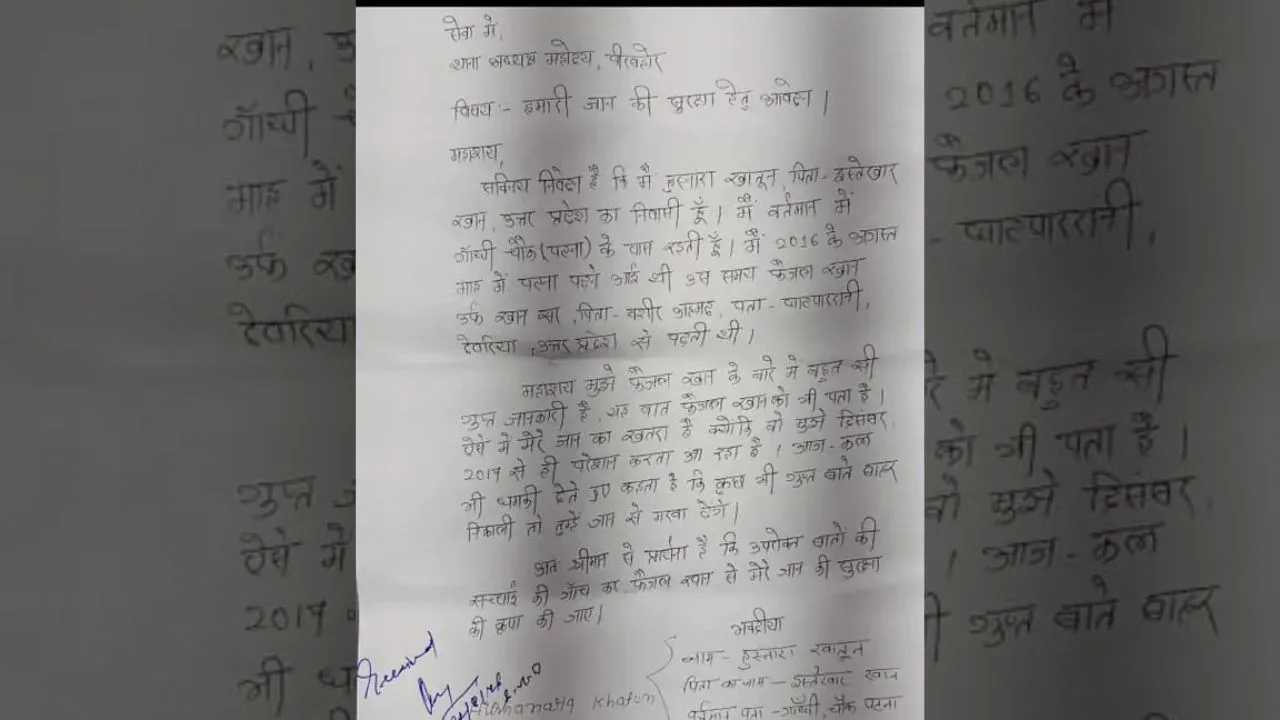 सेवा में,
थाना अध्यक्ष महोदय, पीरबहोर
विषय :- हमारी जान की सुरक्षा हेतु आवेदन |
महाशय,
सविनय निवेदन है कि मैं हुस्नारा खातून, पिता- इस्तेखार
खान, उत्तर प्रदेश का निवासी हूँ | मैं वर्तमान में
गाँधी चौक (पटना) के पास रहती हूँ | मैं 2016 के अगस्त
माह में पटना पढ़ने आई थी उस समय फैजल खान
उर्फ खान सर, पिता- बशीर अहमद, पता- भाटपाररानी,
देवरिया, उत्तर प्रदेश से पढ़ती थी |
महाशय मुझे फैजल खान के बारे मे बहुत सी
गुप्त जानकारी है, यह बात फैजल खान को भी पता है |
ऐसे में मेरे जान का खतरा है क्योंकि वो मुझे दिसंबर,
2019 से ही परेशान करता आ रहा है | आज-कल
भी धमकी देते हुए कहता है कि कुछ भी गुप्त बाते बाहर
निकाली तो तुम्हें जान से मरवा देगें |
अतः श्रीमान से प्रार्थना है कि उपरोक्त बातों की
सच्चाई की जाँच कर फैजल खान से मेरे जान की सुरक्षा
की कृपा की जाए |
भवदीया
नाम- हुस्नारा खातून
पिता का नाम- इस्तेखार खान
वर्तमान पता - गाँधी चौक पटना
Received
Khatun